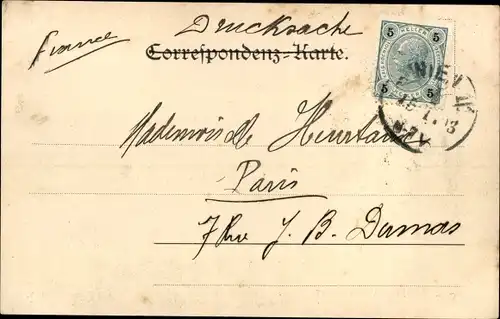 Drucksache
France
Correspondenz-Karte.
5 HELLER 5
5 5
WIEN
Mademoiselle
Paris
7 Rue J. B. Dumas